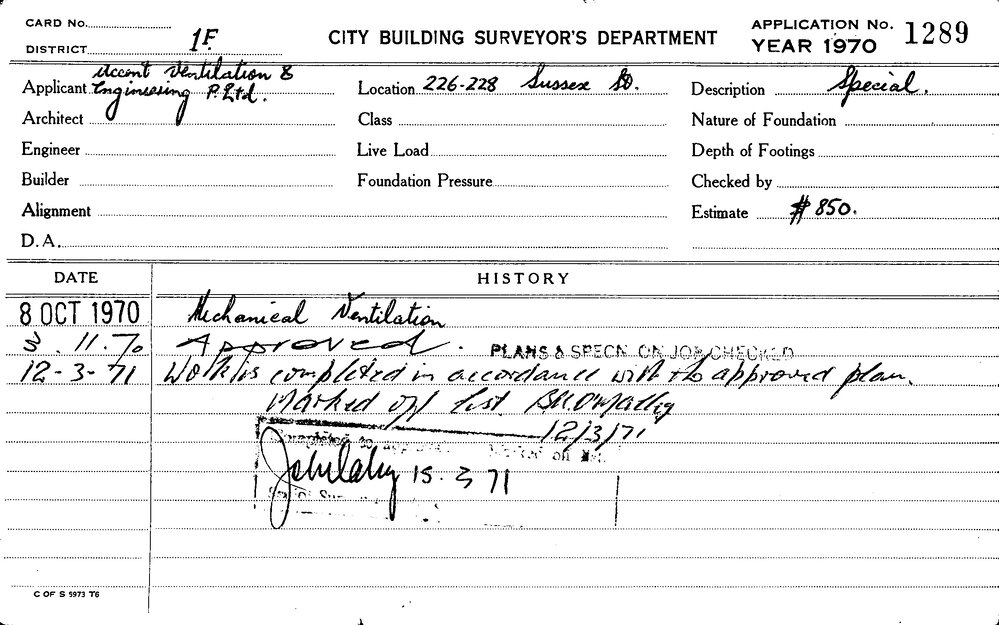 CARD No.
DISTRICT 1F.
CITY BUILDING SURVEYOR'S DEPARTMENT
APPLICATION No. 1289
YEAR 1970
Applicant Accent Ventilation &
Engineering P. Ltd.
Location 226-228 Sussex St.
Description Special.
Architect
Class
Nature of Foundation
Engineer
Live Load
Depth of Footings
Builder
Foundation Pressure
Checked by
Alignment
Estimate $ 850.
D.A.
DATE HISTORY
8 OCT 1970 Mechanical Ventilation
3. 11. 70 Approved. PLANS & SPECN. ON JOB CHECKED
12-3-71 Work is completed in accordance with the approved plan.
Marked off list
12/3/71
Completed to
Marked off
15. 3 71
C OF S 5973 T6